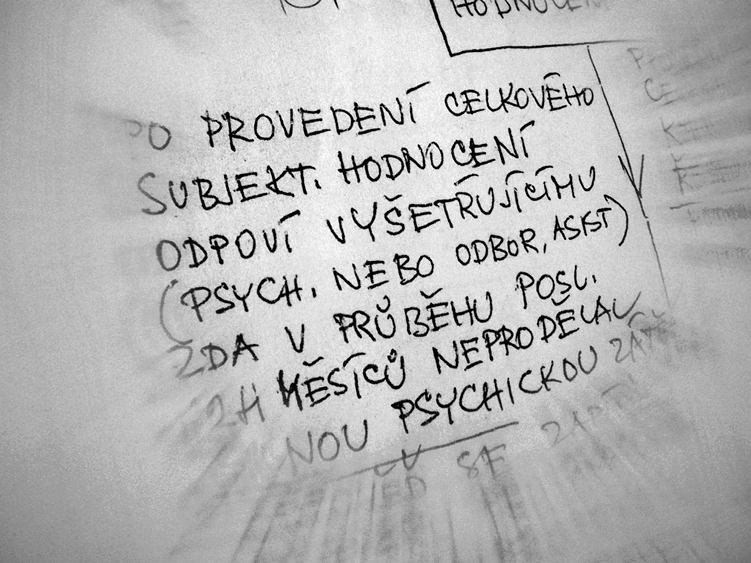 HODNOCENÍ
PO PROVEDENÍ CELKOVÉHO
SUBJEKT. HODNOCENÍ
ODPOVÍ VYŠETŘUJÍCÍMU
(PSYCH. NEBO ODBOR, ASIST)
ZDA V PRŮBĚHU POSL.
MĚSÍCŮ NEPRODĚLAL
NOU PSYCHICKOU
SE